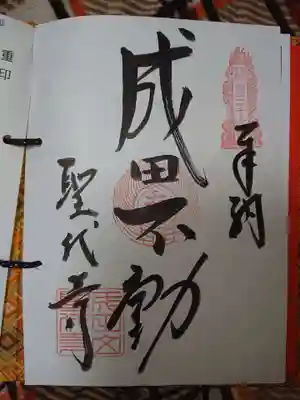 奉納
成田不動
聖代寺
重印